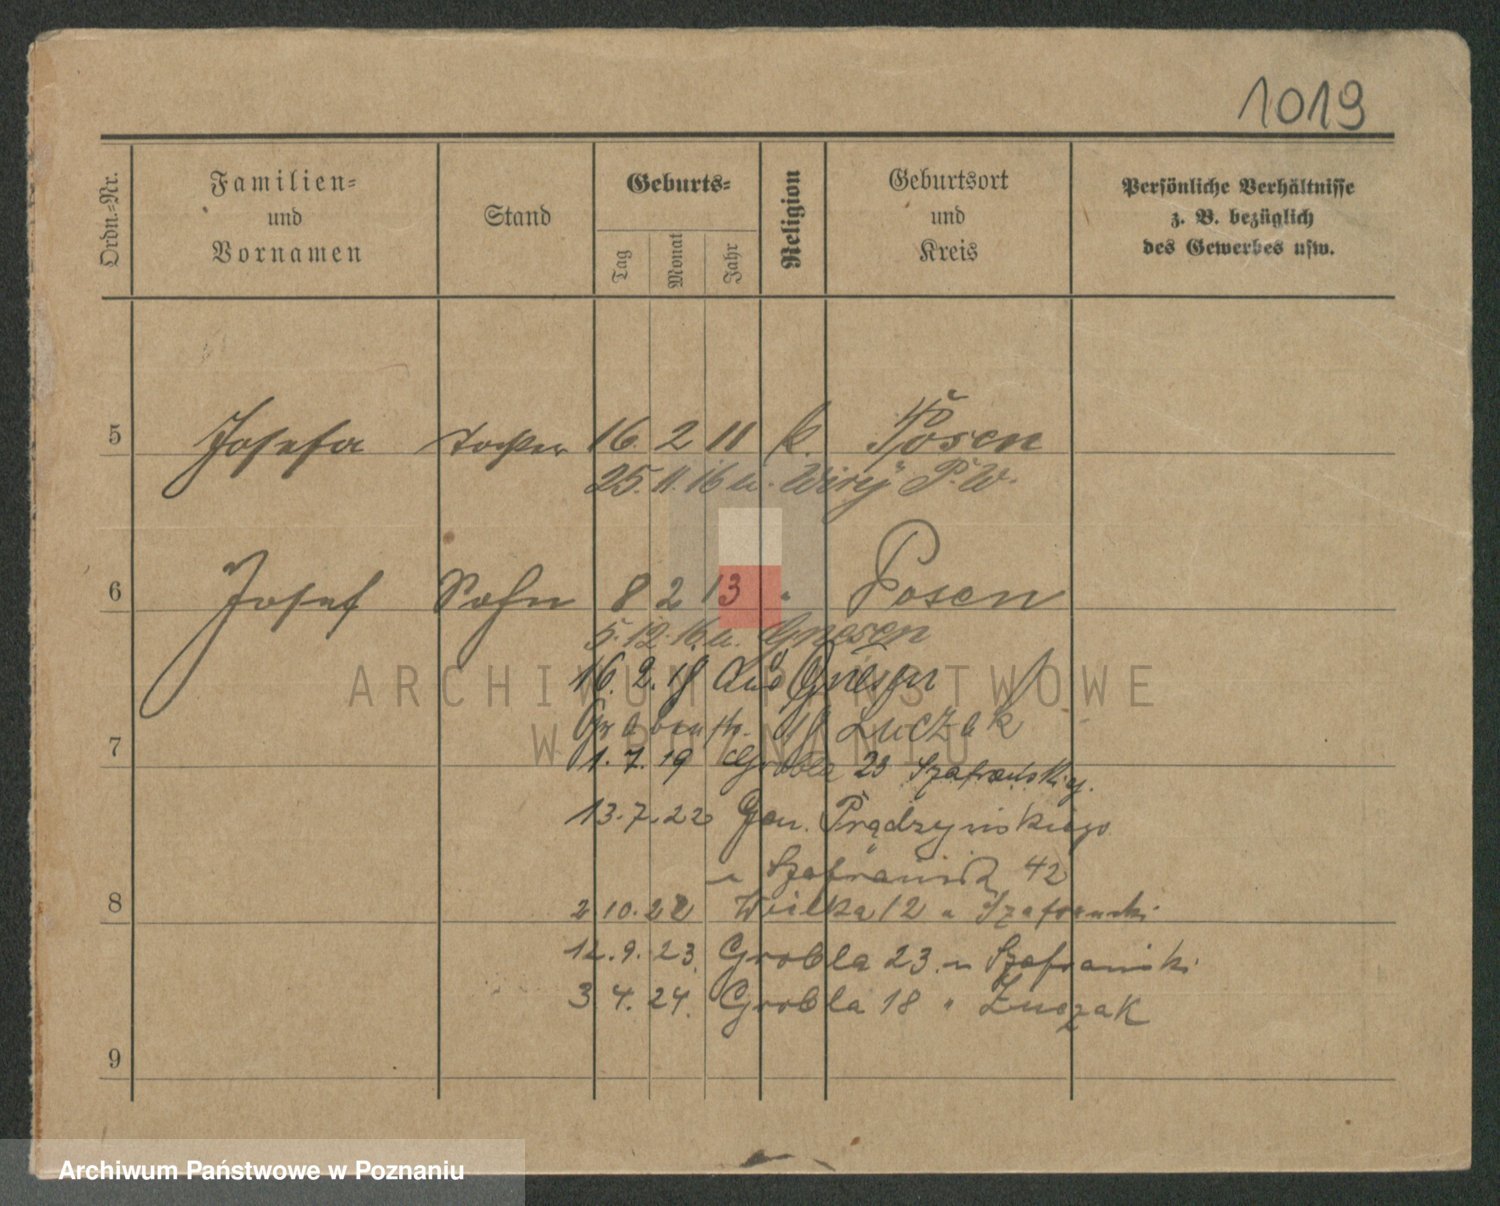 1019
Ordn.-Nr.
Familien-
und
Vornamen
Stand
Geburts-
Tag
Monat
Jahr
Religion
Geburtsort
und
Kreis
Persönliche Verhältnisse
z. B. bezüglich
des Gewerbes usw.
5 Josefa Tochter 16. 2 11 k. Posen
25. 11. 16 n. Wiry P. W.
6 Josef Sohn 8 2 13 " Posen
5. 12. 16 n. Gnesen
16. 2. 18 Aus Gnesen
Luczak
7
1. 7. 19 Grobla 23 Szafrański
13. 7. 22 Gen. Prądzyńskiego
42
8
2 10. 22 Wielka 12 u Szafrański
12. 9. 23. Grobla 23 u Szafrański
3 4. 24. Grobla 18 " Luczak
9
ARCHIWUM PAŃSTWOWE
W POZNANIU
Archiwum Państwowe w Poznaniu